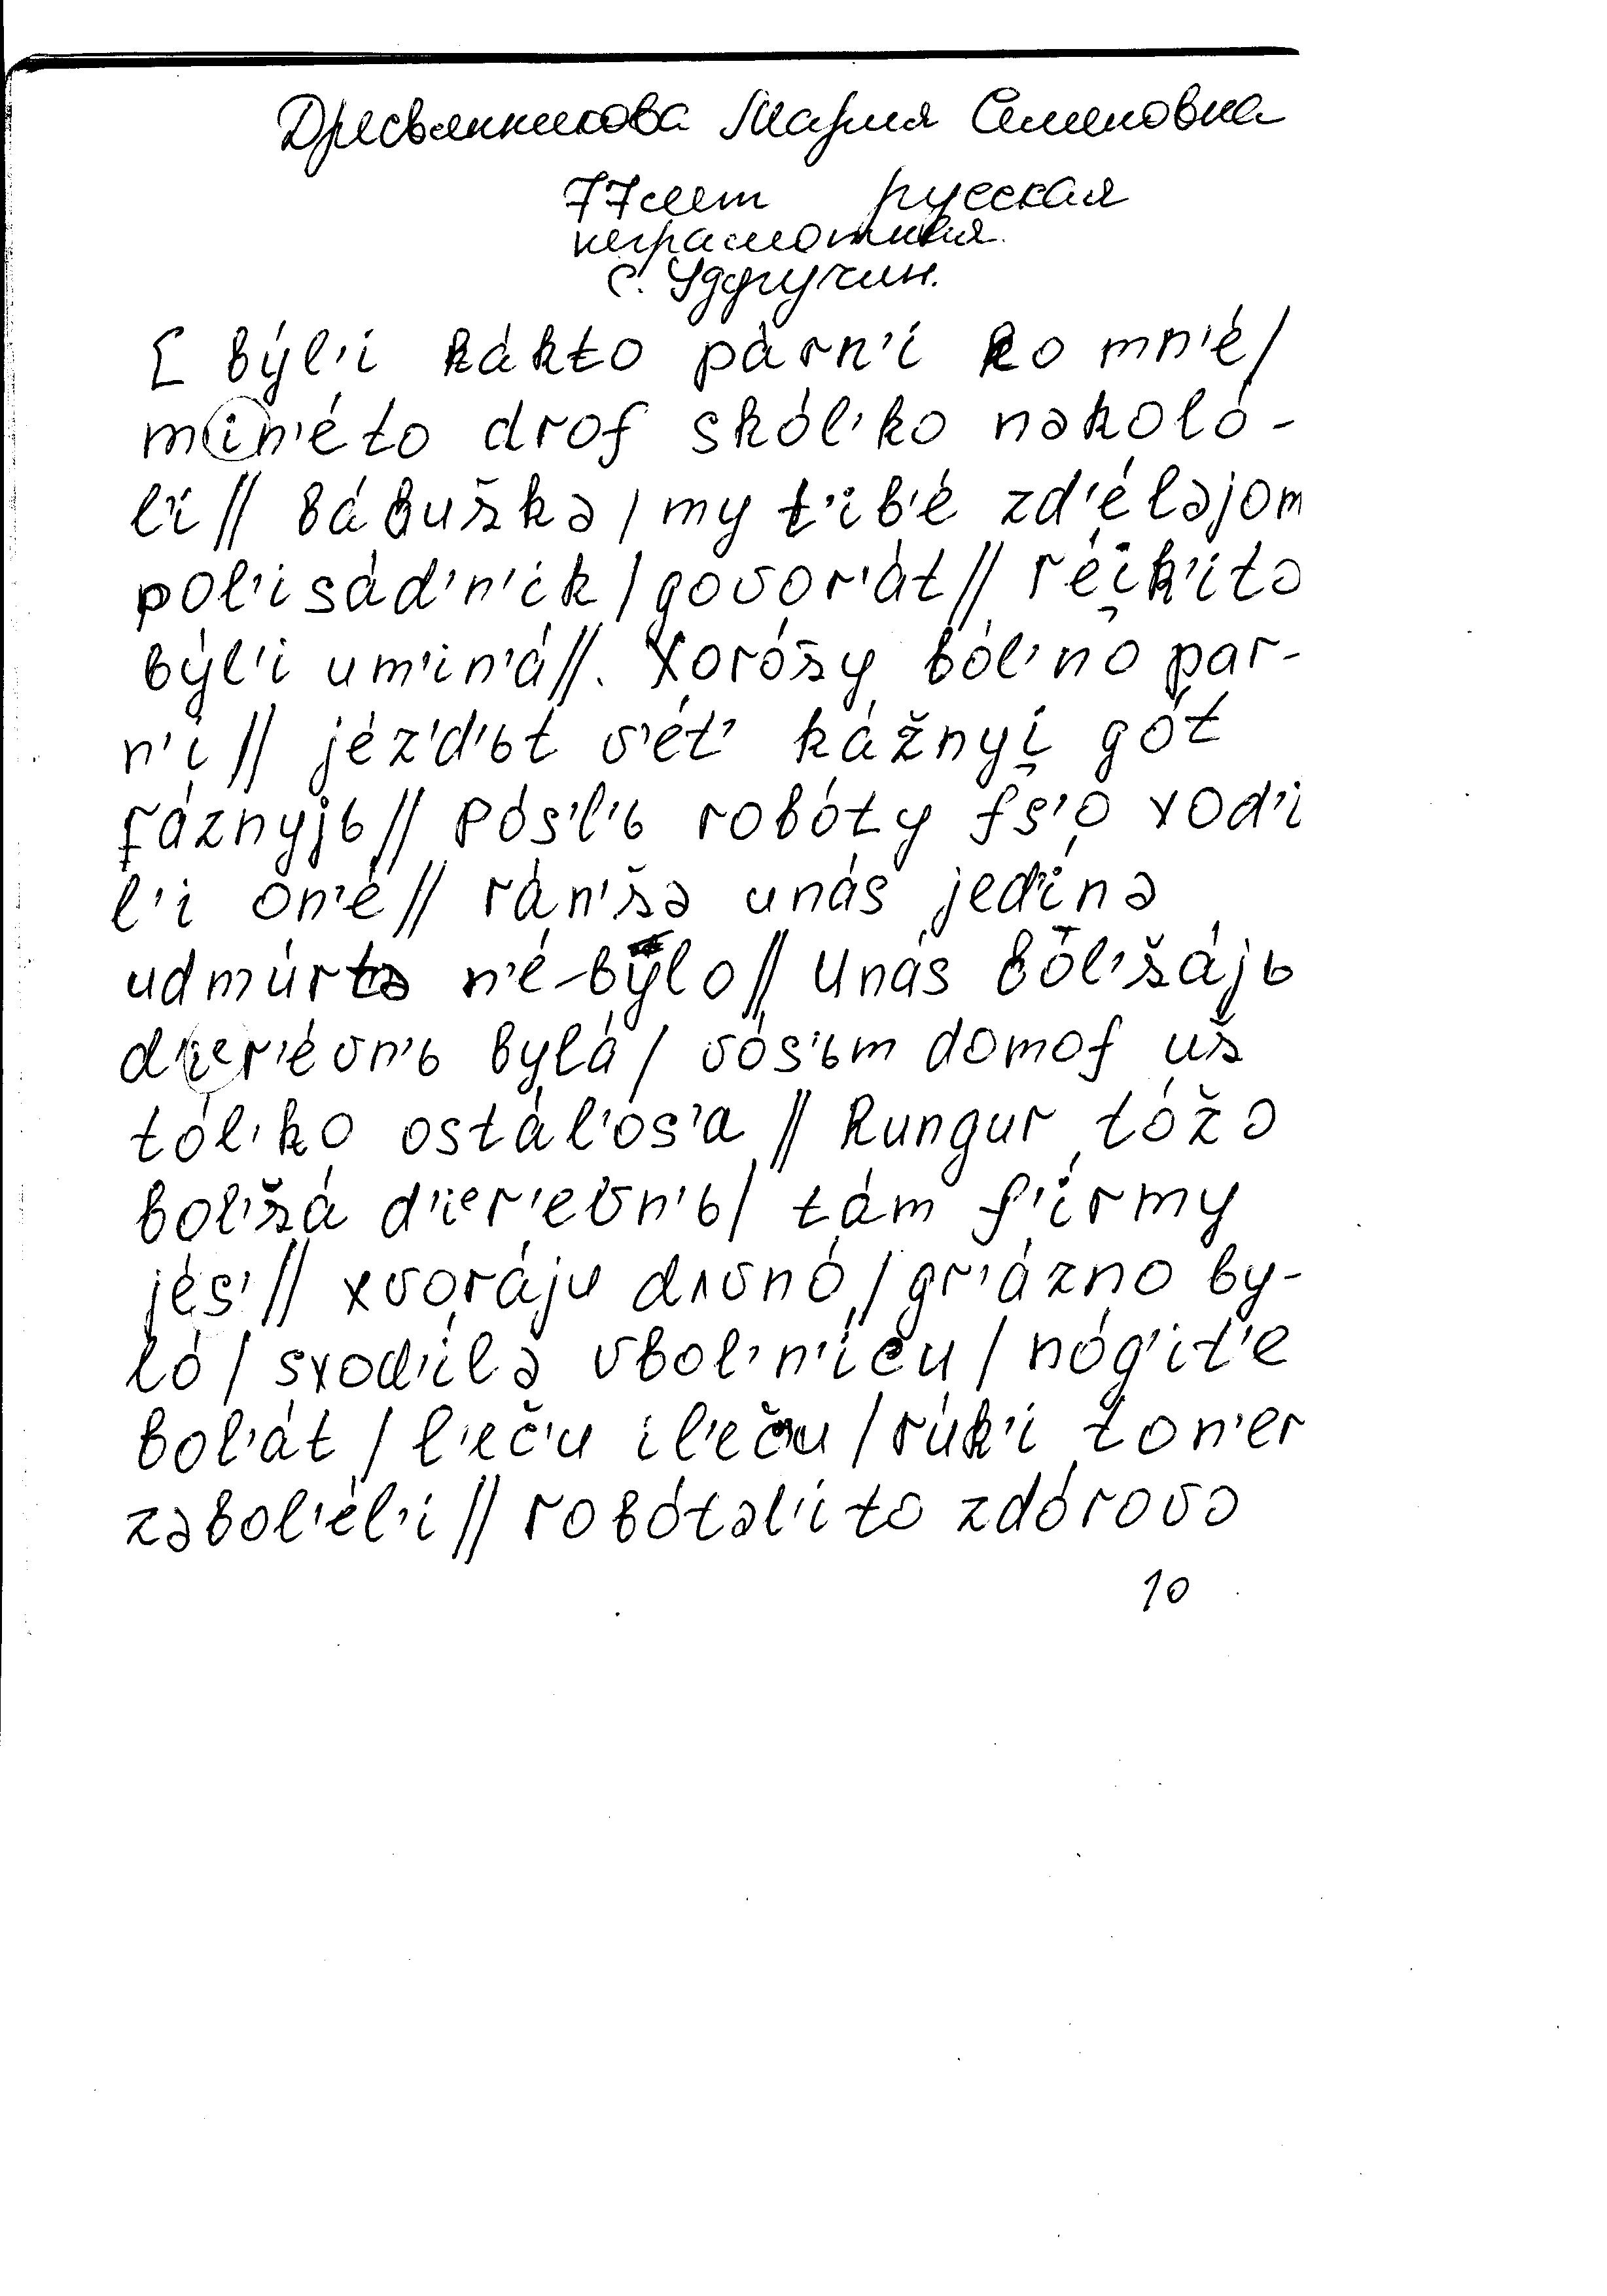 Дресвянникова Мария Семеновна
77 лет русская
неграмотная.
с.
[ býl'i kákto párn'i ko mn'é /
min'éto drof skól'ko nəkoló-
l'i // bábuškə / my t'ib'é zd'éləjom
pol'isád'n'ik / govor'át // r'éi̯k'itə
býl'i um'in'á //. Xoróšy ból'no par-
n'i // jéz'd'ьt v'ét' kážnyi̯ gót
ráznyjь // pós'l'ь robóty fs'o xod'i
l'i on'é // rán'šə unás jed'ínə
udmúrtə n'é-bylo // unás bol'šájь
d'ier'évn'ь bylá / vós'ьm domof uš
tól'ko ostál'os'a // Kungur tóžə
bol'šá d'ier'evn'ь / tám f'írmy
jés' // xvoráju dʌvnó / gr'ázno by-
ló / sxod'ílə vbol'n'ícu / nóg'it'e
bol'át / l'eč'u il'eču / rúk'i ton'er
zəbol'él'i // robótəl'ito zdórovə
10